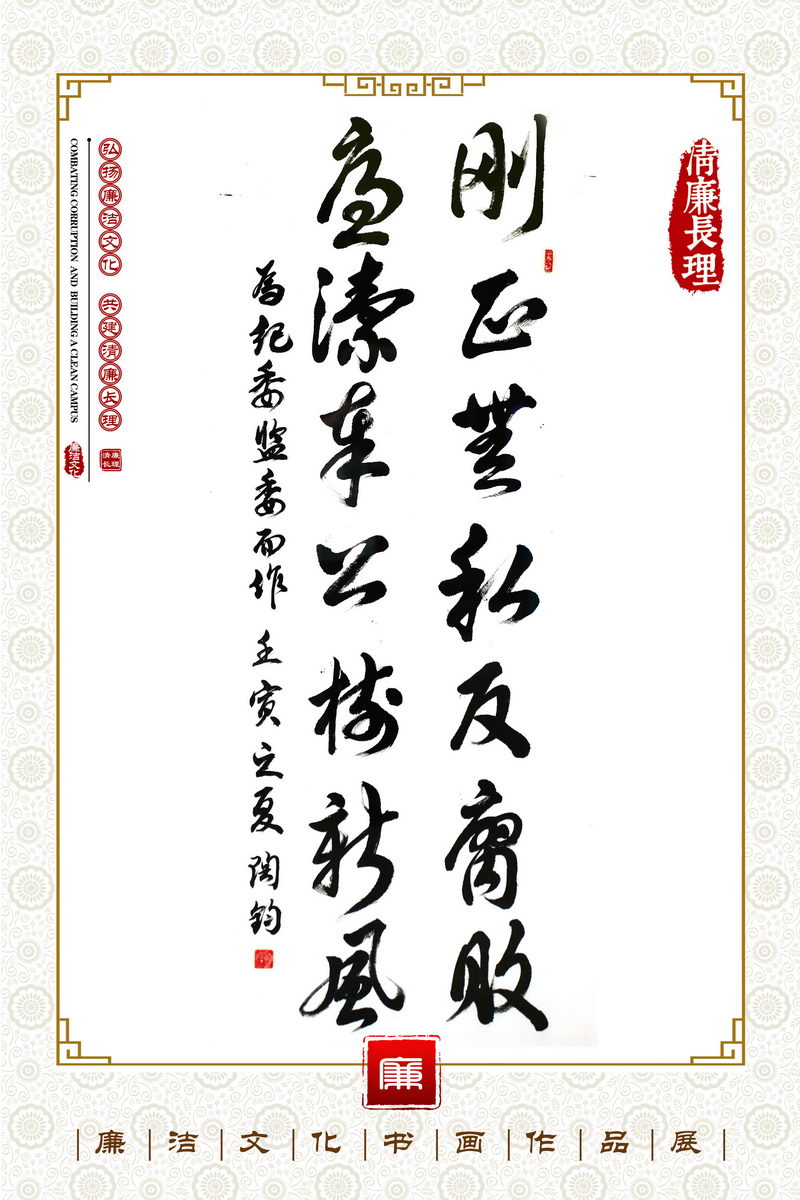 清廉長理
刚正無私反腐敗
廉潔奉公樹新風
为纪委监委而作 壬寅之夏 陶钧
弘扬廉洁文化 共建清廉长理
COMBATING CORRUPTION AND BUILDING A CLEAN CAMPUS
廉洁文化
清廉长理
廉
廉洁文化书画作品展